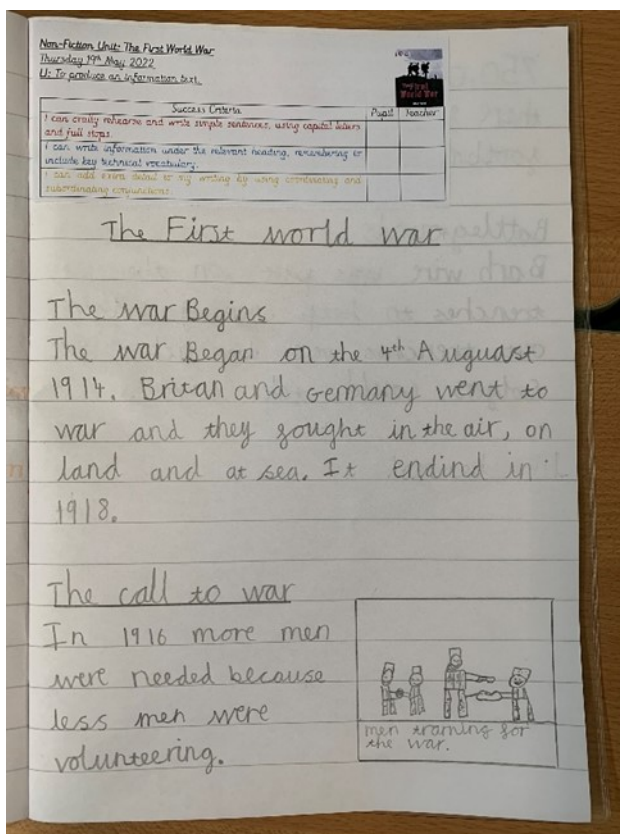 Non-Fiction Unit: The First World War
Thursday 19th May 2022
U: To produce an information text.
The First World War
Success Criteria
Pupil
Teacher
I can orally rehearse and write simple sentences, using capital letters
and full stops.
I can write information under the relevant heading, remembering to
include key technical vocabulary.
I can add extra detail to my writing by using coordinating and
subordinating conjunctions.
The First world war
The war Begins
The war Began on the 4th Auguast
1914. Britan and Germany went to
war and they fought in the air, on
land and at sea. It endind in
1918.
The call to war
In 1916 more men
were needed because
less men were
volunteering.
men traning for
the war.